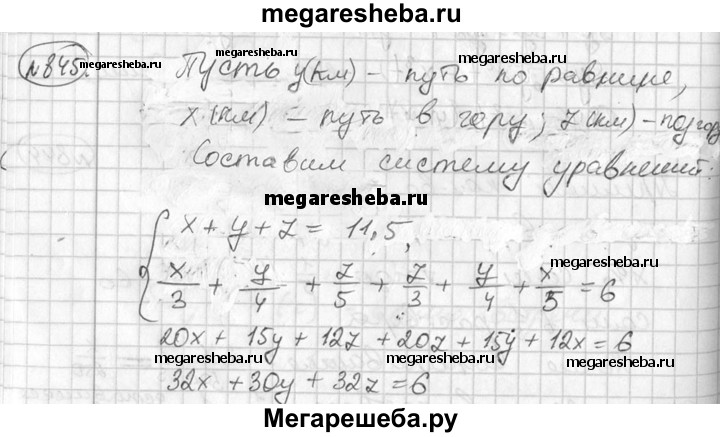 megaresheba.ru
№845.
Пусть y(км) - путь по равнине,
x(км) - путь в гору, z(км) - под гору
Составим систему уравнений:
megaresheba.ru
x + y + z = 11,5,
x/3 + y/4 + z/5 + z/3 + y/4 + x/5 = 6
20x + 15y + 12z + 20z + 15y + 12x = 6
32x + 30y + 32z = 6
megaresheba.ru
megaresheba.ru
megaresheba.ru
megaresheba.ru
megaresheba.ru
megaresheba.ru
megaresheba.ru
megaresheba.ru
Мегарешеба.ру